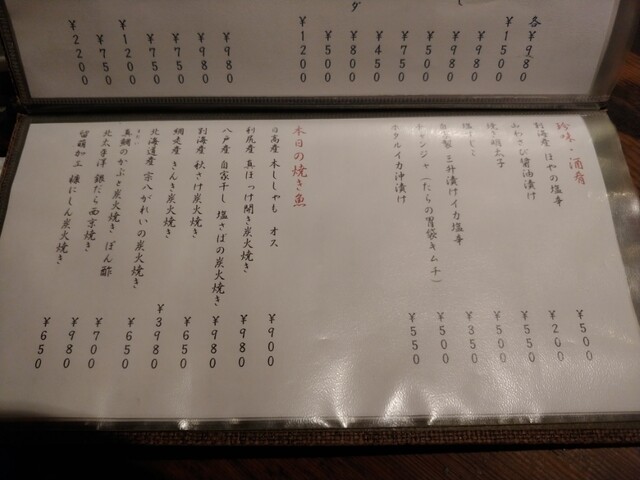 各¥980
¥1500
¥980
¥980
¥500
¥750
¥450
¥800
¥500
¥1200
¥980
¥980
¥750
¥750
¥1200
¥750
¥2200
珍味・酒肴
別海産 ほやの塩辛 ¥500
山わさび醤油漬け ¥200
焼き明太子 ¥550
¥500
自家製 三升漬けイカ塩辛 ¥350
チャンジャ(たらの胃袋キムチ) ¥500
ホタルイカ沖漬け ¥550
本日の焼き魚
日高産 本ししゃも オス ¥900
利尻産 真ほっけ開き炭火焼き ¥980
八戸産 自家干し 塩さばの炭火焼き ¥980
別海産 秋さけ炭火焼き ¥650
網走産 きんき炭火焼き ¥3980
北海道産 宗八がれいの炭火焼き ¥650
真鯛のかぶと炭火焼き ぽん酢 ¥700
北太平洋 銀だら西京焼き ¥980
留萌加工 糠にしん炭火焼き ¥650